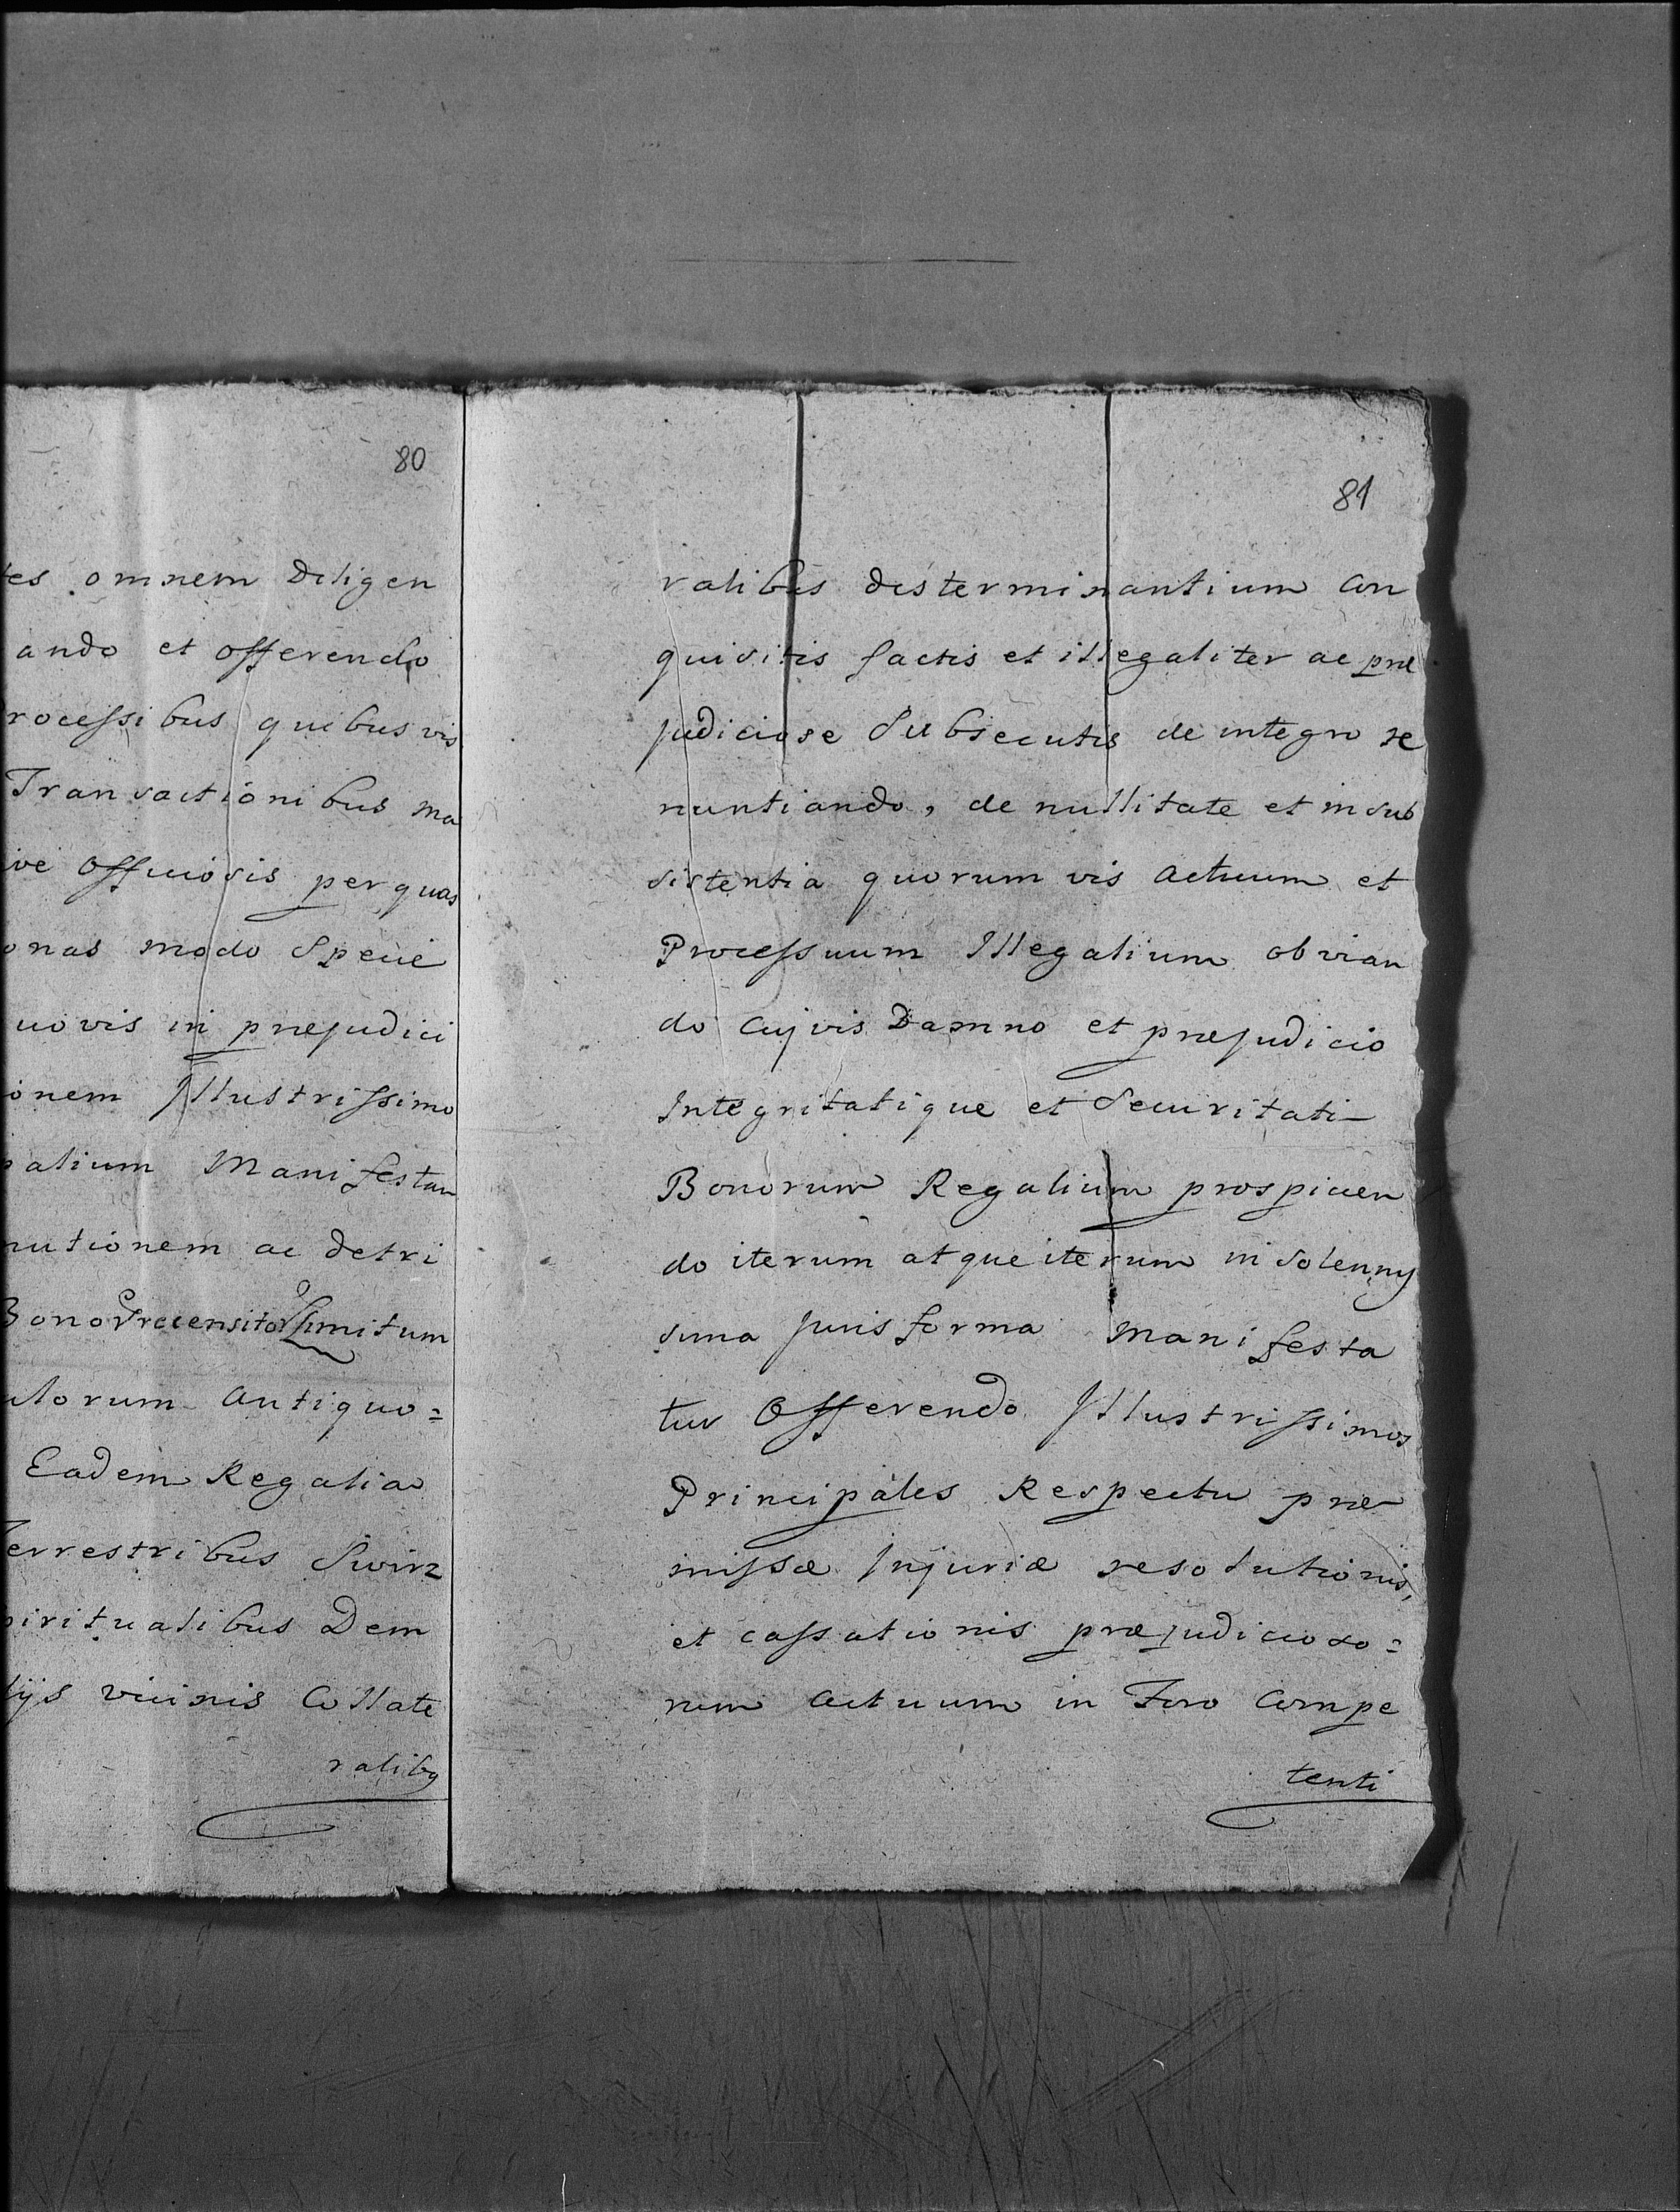 80
tes omnem Diligen
ando et offerendo
rocessibus quibus vis
Transactionibus ma
ive officiosis per quas
onas modo Specie
uovis in præjudici
ionem Illustrissimo
palium Manifestan
nutionem ac detri
Bonor Præcensitor Limitum
ulorum antiquo=
Eadem Regalia
Terrestribus Swirz
piritualibus Dem
lijs vicinis Collate
ralibq
81
ralibus desterminantium con
quisitis factis et illegaliter ac præ
judiciose Subsecutis de integro re
nuntiando, de nullitate et insub
sistentia quorum vis actuum et
Processuum Illegalium obvian
do cujvis Damno et præjudicio
Integritatique et Securitati
Bonorum Regalium prospicien
do iterum atque iterum in solenny
sima juris forma manifesta
tur Offerendo Illustrissimos
Principales Respectu præ
missæ Injuriæ resolutionis,
et cassationis præjudicioso=
rum actuum in Foro Compe
tenti